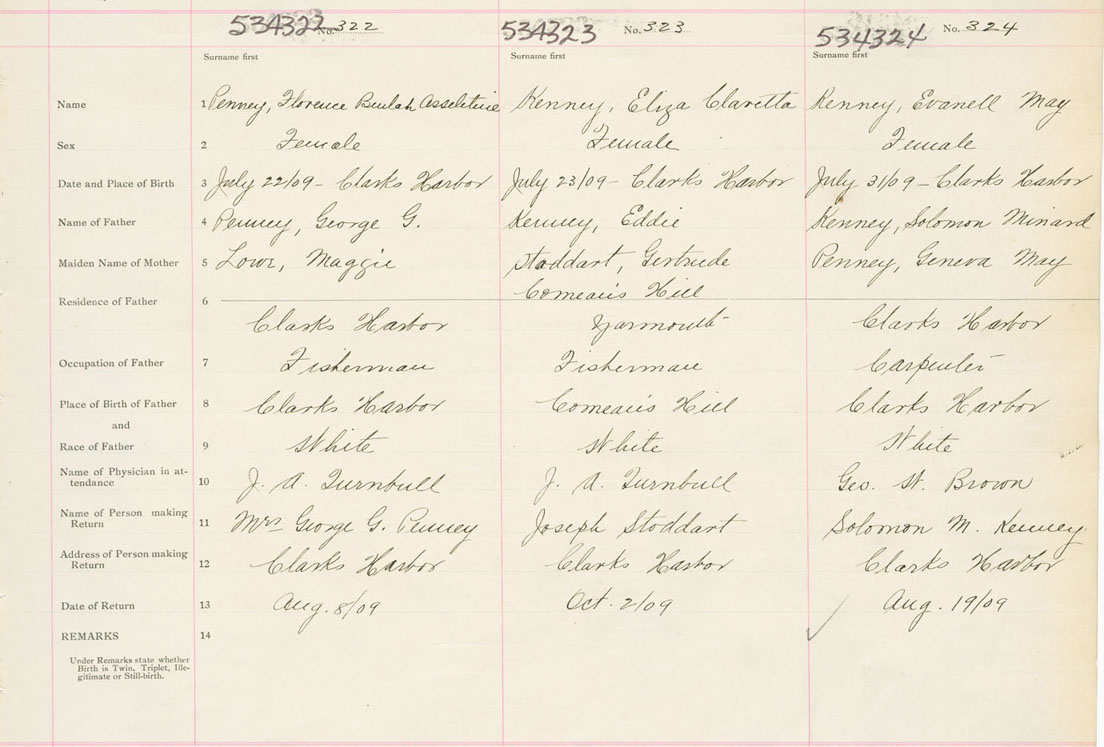 534322 No. 322 534323 No. 323 534324 No. 324
Surname first Surname first Surname first
Name 1 Penney, Florence Beulah Kenney, Eliza Claretta Kenney, Evanell May
Sex 2 Female Female Female
Date and Place of Birth 3 July 22/09 - Clarks Harbor July 23/09 - Clarks Harbor July 31/09 - Clarks Harbor
Name of Father 4 Penney, George G. Kenney, Eddie Kenney, Solomon Minard
Maiden Name of Mother 5 Lowe, Maggie Stoddart, Gertrude Penney, Geneva May
Residence of Father 6 Comeau's Hill
Clarks Harbor Yarmouth Clarks Harbor
Occupation of Father 7 Fisherman Fisherman Carpenter
Place of Birth of Father 8 Clarks Harbor Comeau's Hill Clarks Harbor
and
Race of Father 9 White White White
Name of Physician in at-
tendance 10 J. A. Turnbull J. A. Turnbull Geo. W. Brown
Name of Person making
Return 11 Mrs George G. Penney Joseph Stoddart Solomon M. Kenney
Address of Person making
Return 12 Clarks Harbor Clarks Harbor Clarks Harbor
Date of Return 13 Aug. 8/09 Oct. 2/09 Aug. 19/09
REMARKS 14
Under Remarks state whether
Birth is Twin, Triplet, Ille-
gitimate or Still-birth.